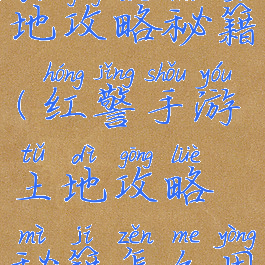 地攻略秘籍
hóng jǐng shǒu yóu
(红警手游
tǔ dì gōng lüè
土地攻略
mì jí zěn me yòng
秘籍怎么用